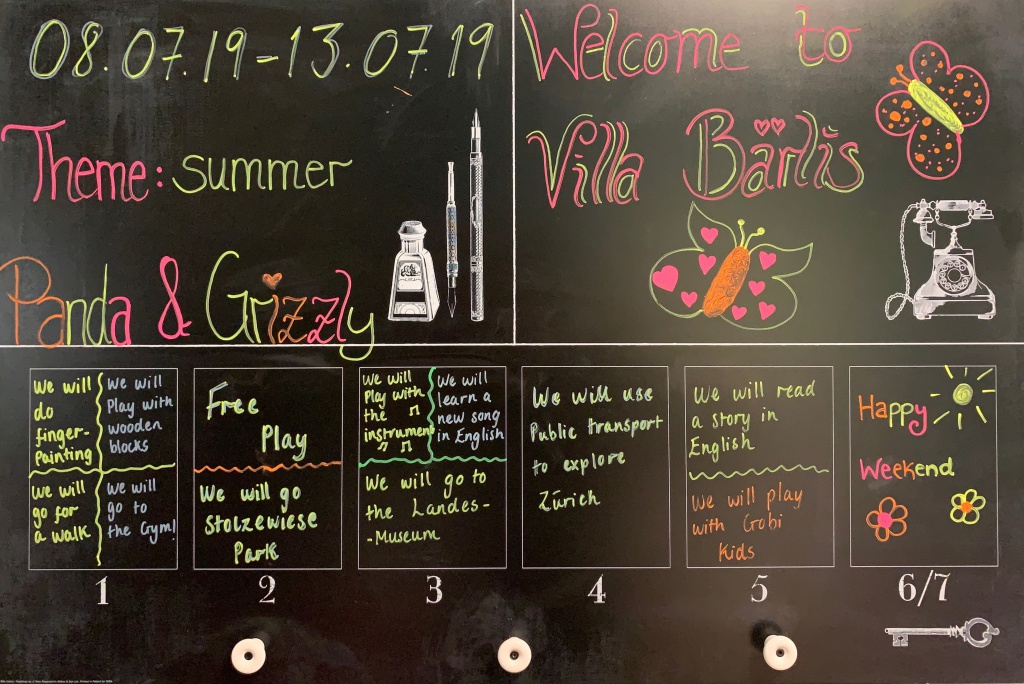 08.07.19-13.07.19
Theme: summer
Panda & Grizzly
Welcome to
Villa Bärlis
We will
do
finger-
Painting
We will
Play with
wooden
blocks
We will
go for
a walk
We will
go to
the Gym!
1
Free
Play
We will go
Stolzewiese
Park
2
We will
Play with
the
instrument
We will
learn a
new song
in English
We will go to
the Landes-
-Museum
3
We will use
Public transport
to explore
Zürich
4
We will read
a story in
English
We will play
with Gobi
Kids
5
Happy
Weekend
6/7